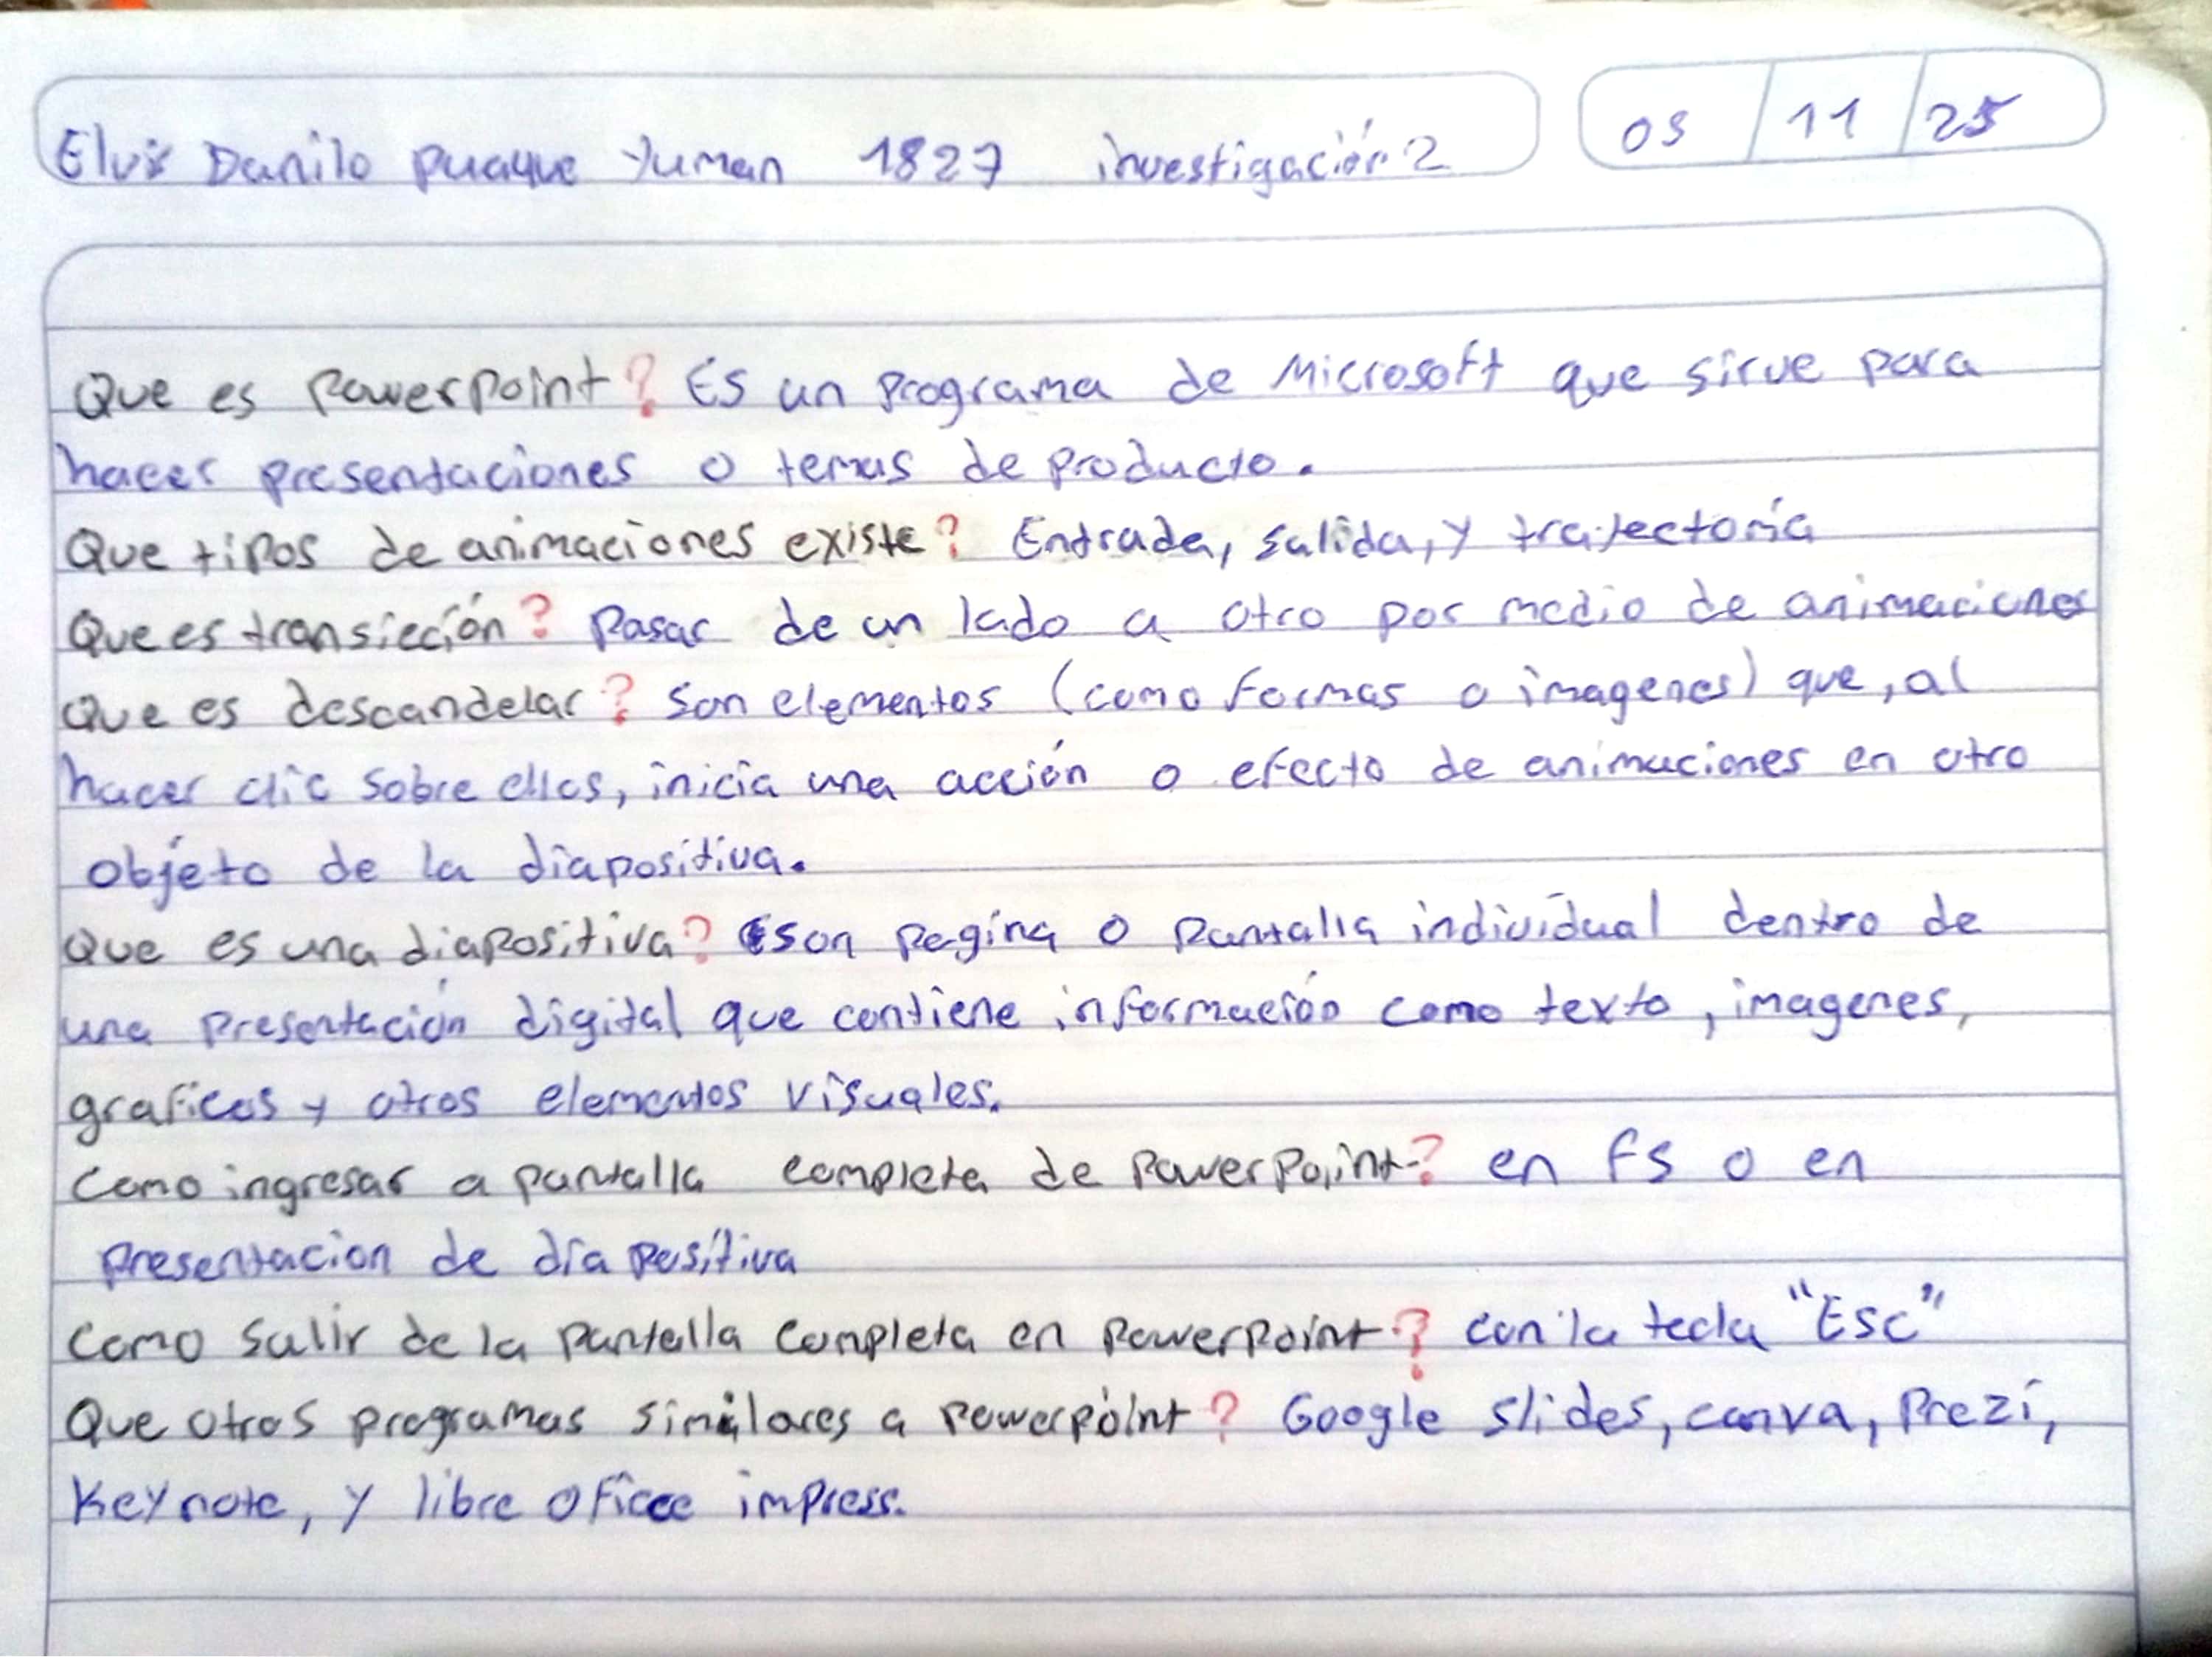 Elvis Danilo puaque Yuman 1827 investigación 2 05 / 11 / 25
Que es PowerPoint? Es un programa de Microsoft que sirve para
hacer presentaciones o temas de producto.
Que tipos de animaciones existe? Entrada, salida, y trayectoria
Que es transicción? Pasar de un lado a otro por medio de animaciones
Que es descandelar? Son elementos (como formas o imagenes) que, al
hacer clic sobre ellos, inicia una acción o efecto de animaciones en otro
objeto de la diapositiva.
Que es una diapositiva? son pagina o pantalla individual dentro de
una presentación digital que contiene información como texto, imagenes,
graficos y otros elementos visuales.
Como ingresar a pantalla completa de PowerPoint? en f5 o en
presentacion de diapositiva
Como salir de la pantalla completa en PowerPoint? con la tecla "Esc"
Que otros programas similares a Powerpoint? Google slides, canva, Prezi,
Keynote, y libre oficce impress.